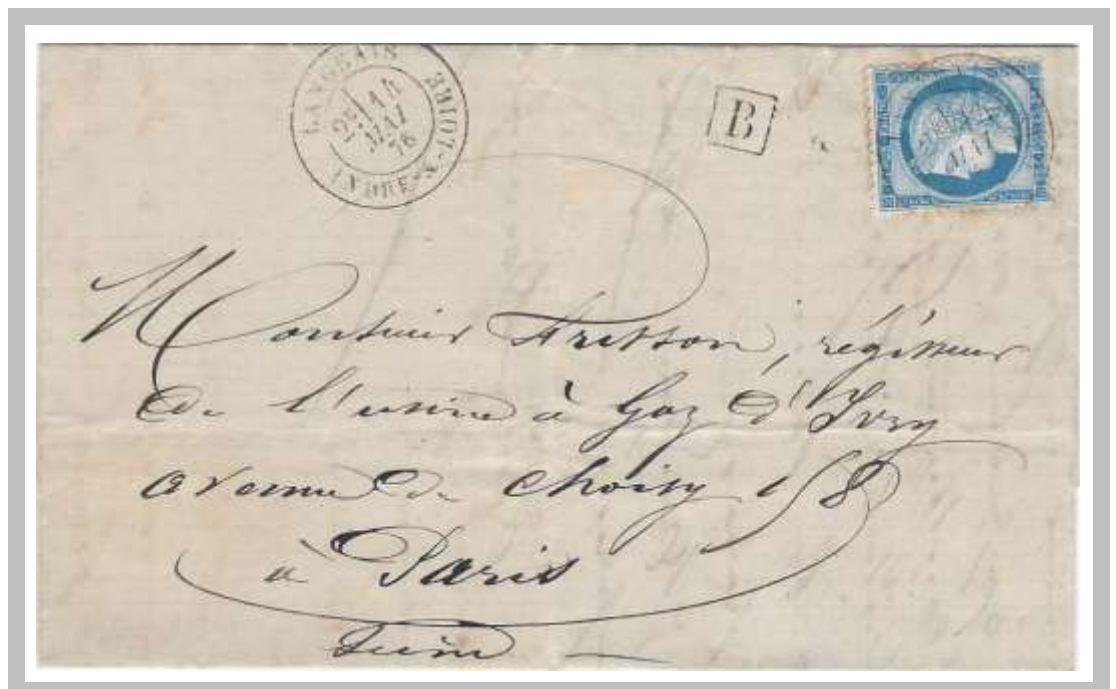 LANGEAIS
INDRE-&-LOIRE
2E
14
MAI
76
B
MAI
Monsieur Frisson, régisseur
de l'usine à Gaz d'Ivry
avenue de Choisy
à Paris
Seine